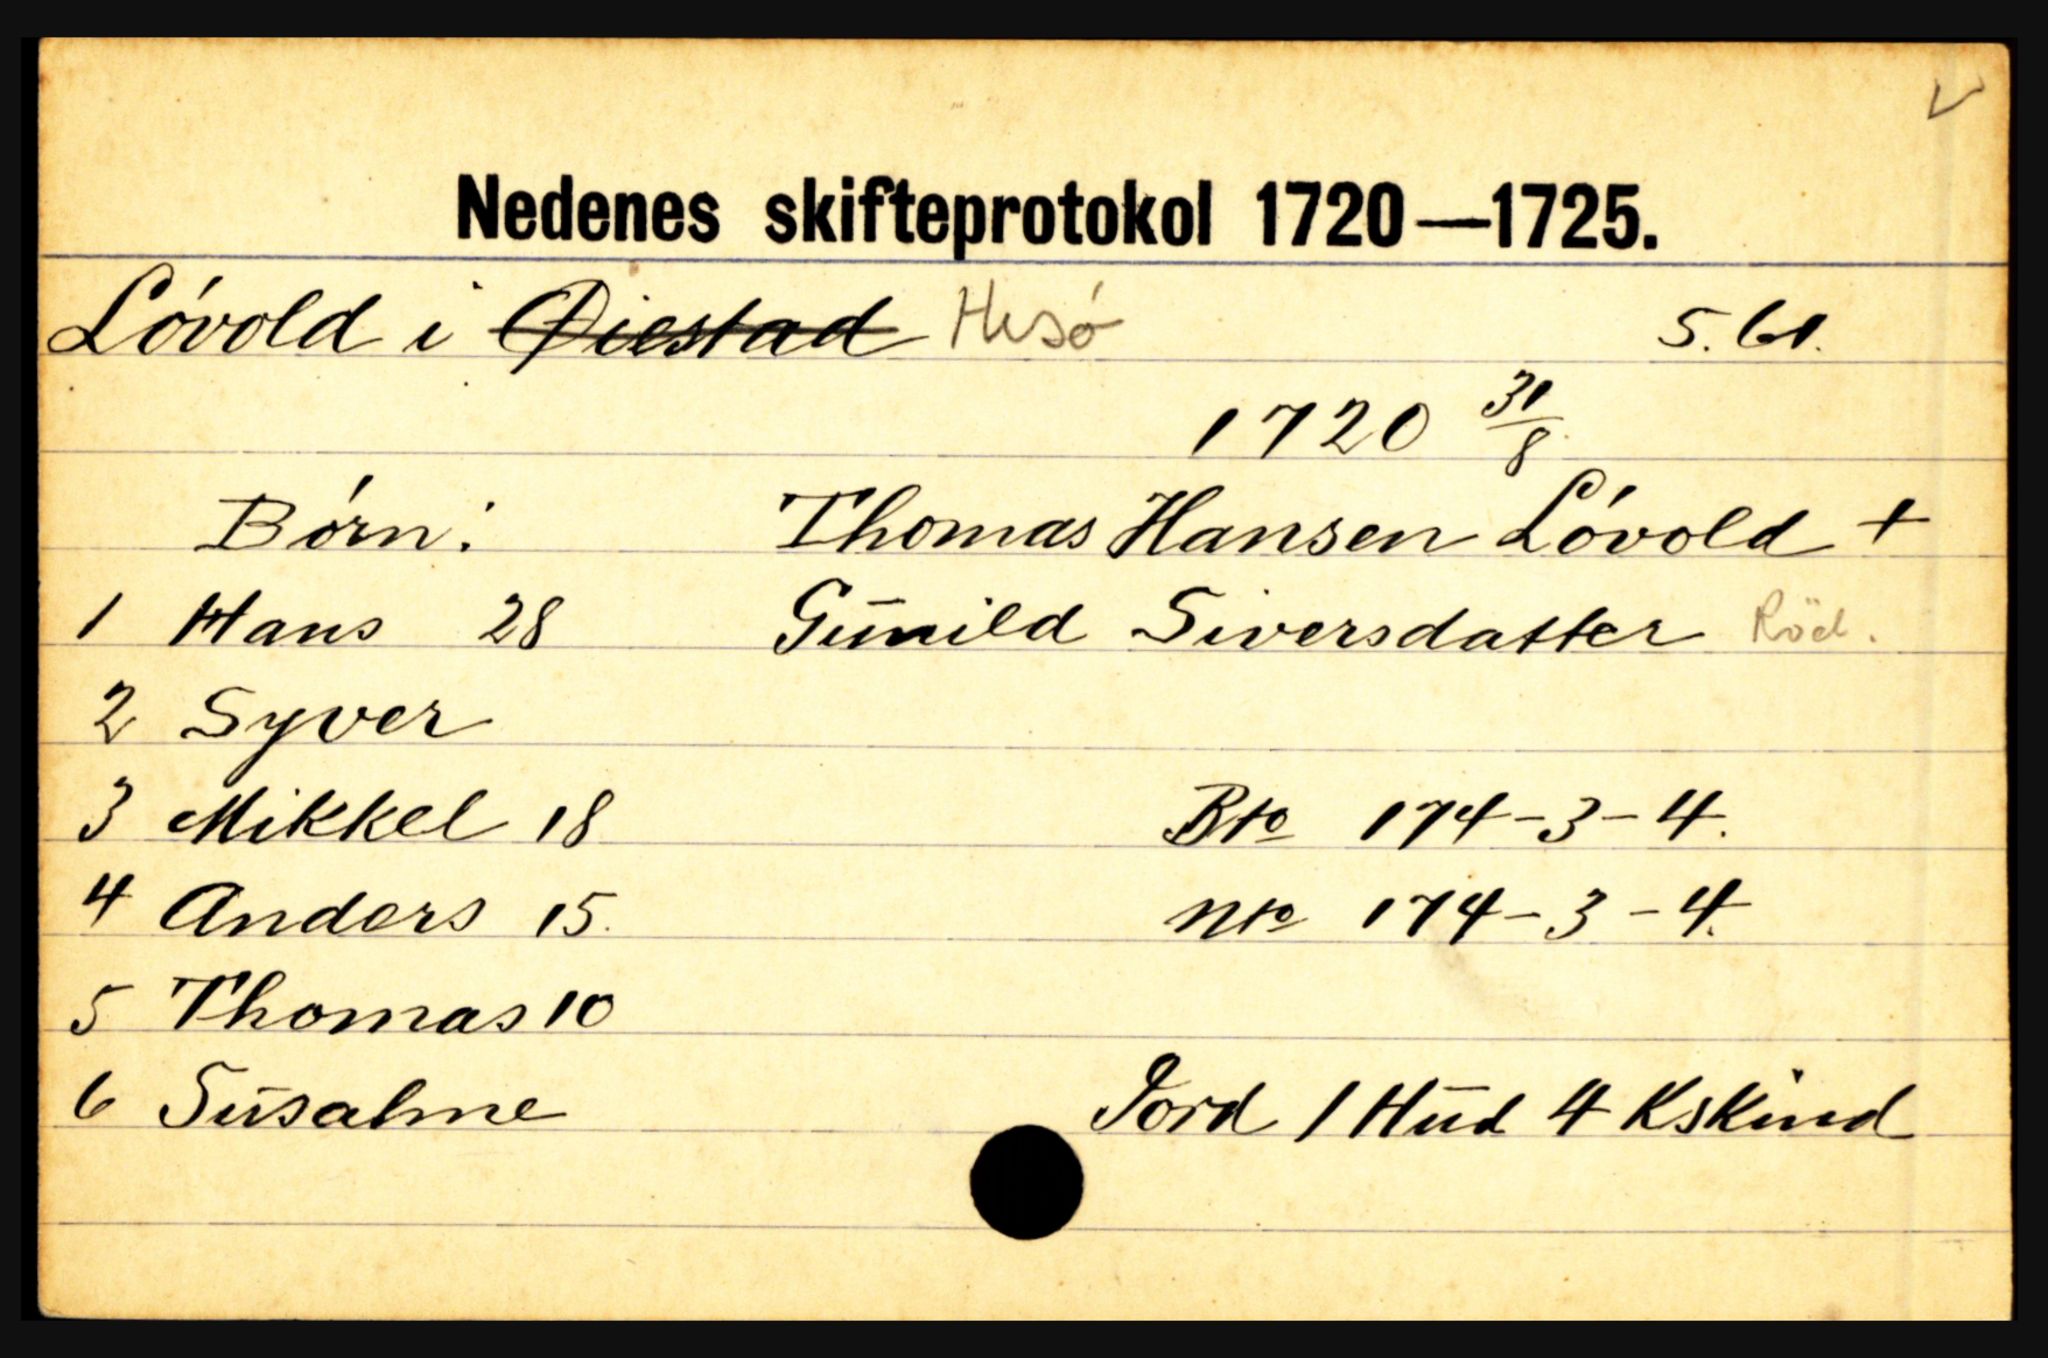 V
Nedenes skifteprotokol 1720—1725.
Lóvold i Øiestad Hisó 5. 61.
1720 31/8
Børn: Thomas Hansen Lóvold +
1 Hans 28 Gunild Siversdatter Röd.
2 Syver
3 Mikkel 18 Bto 174-3-4.
4 Anders 15. Nto 174-3-4.
5 Thomas 10
6 Susalme Jord 1 Hud 4 Kskind